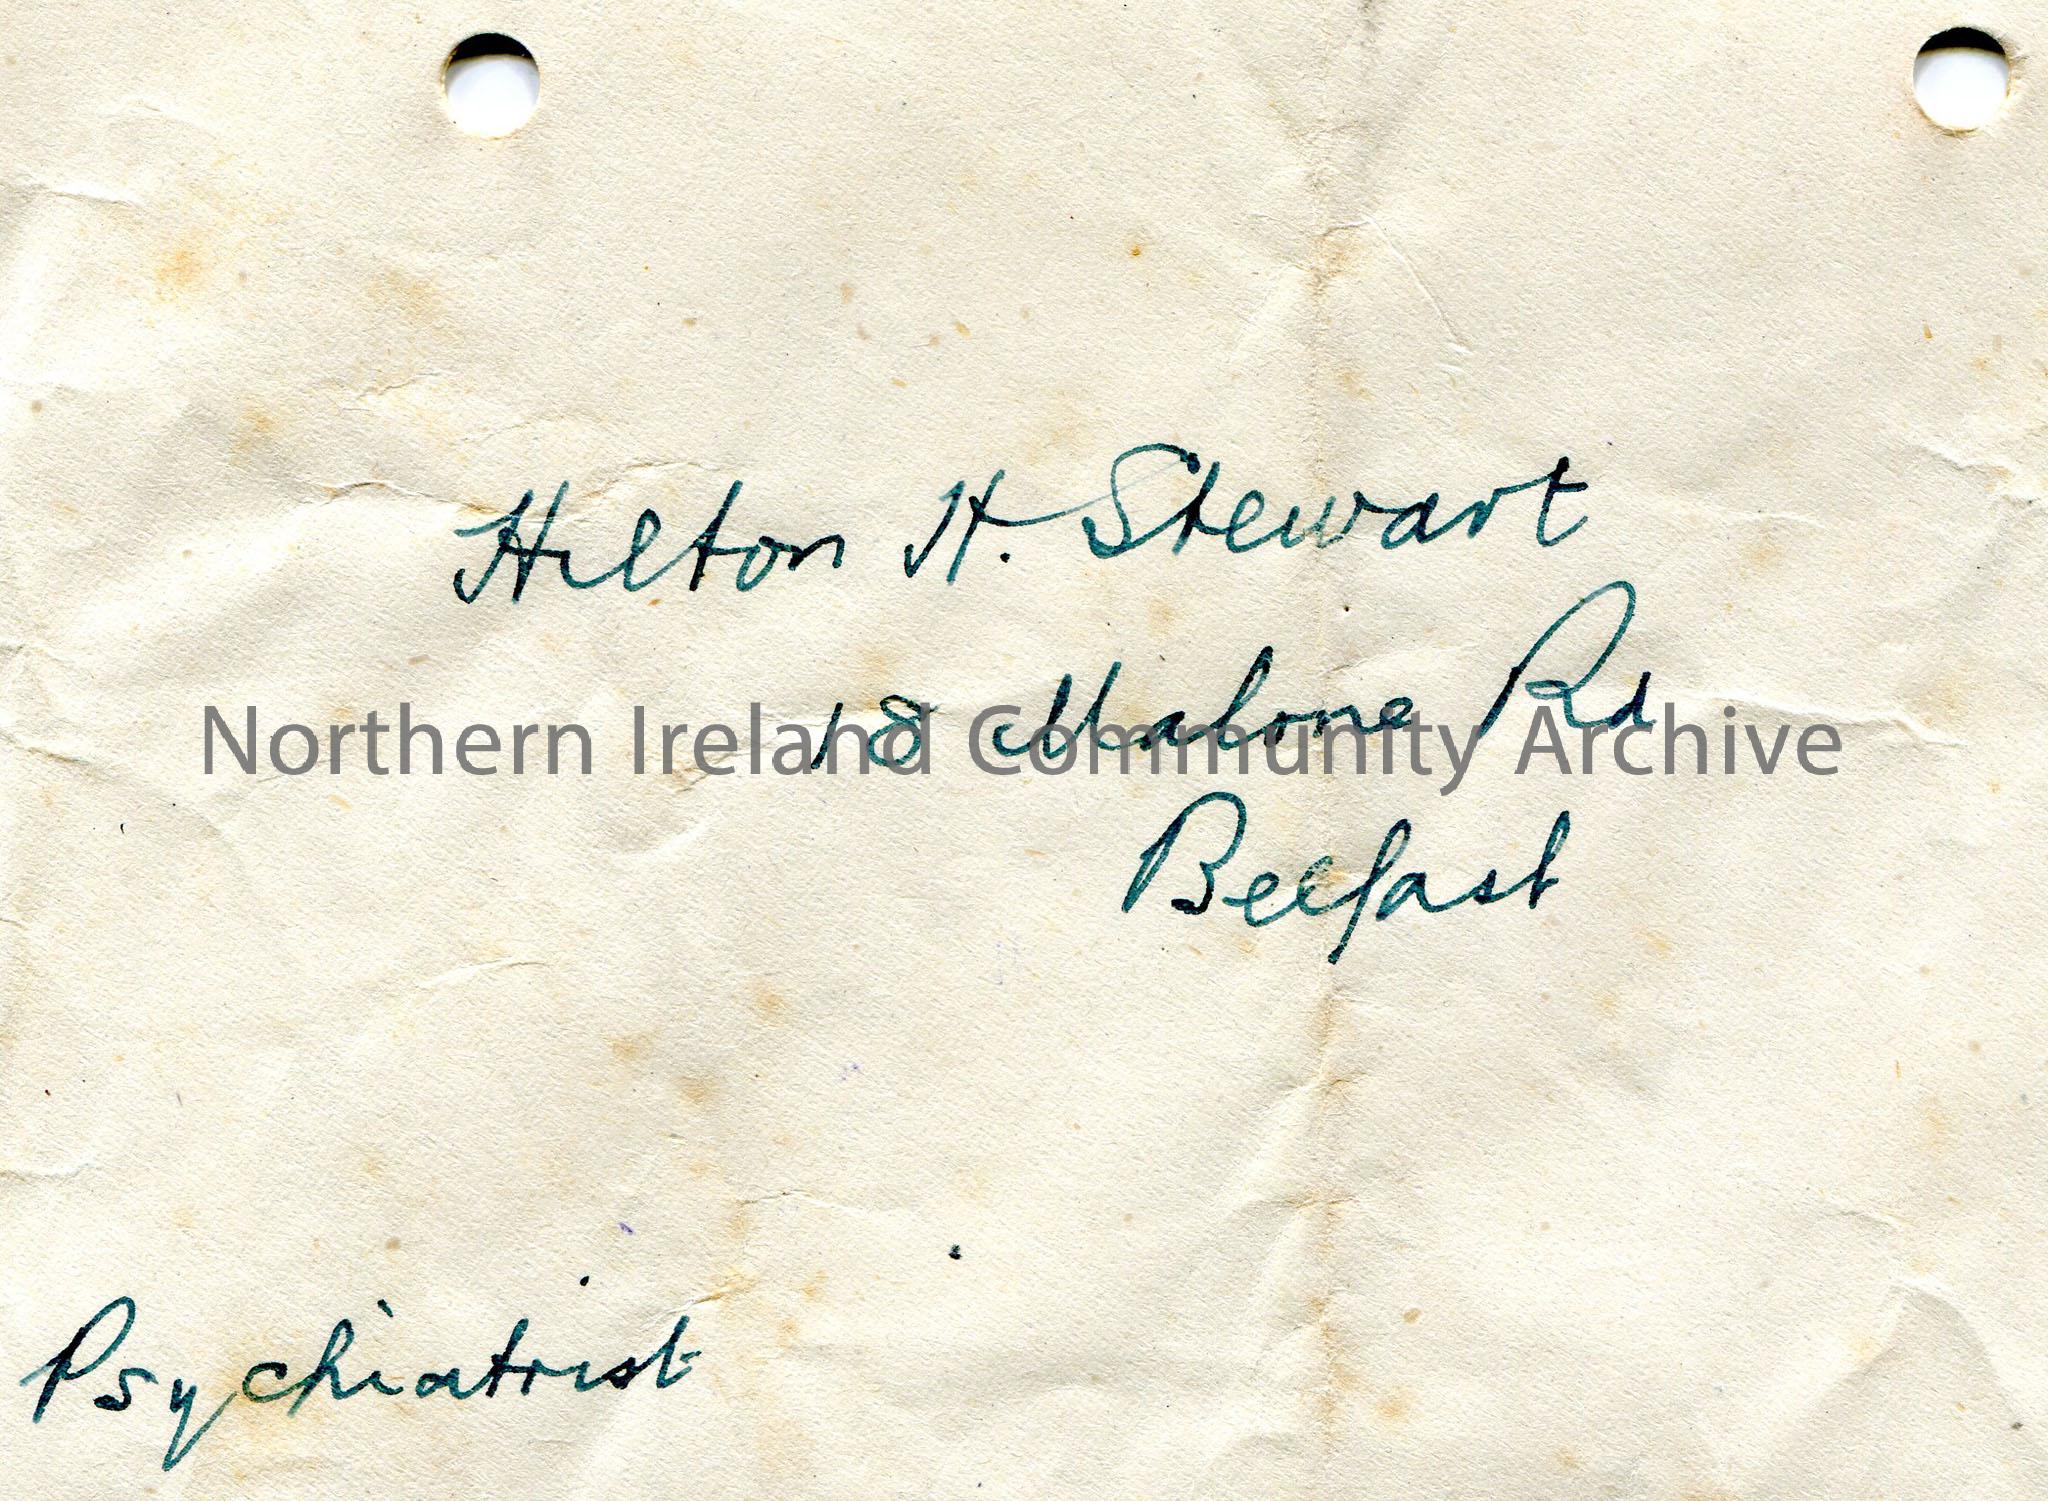 Hilton H. Stewart
18 Malone Rd
Northern Ireland Community Archive
Belfast
Psychiatrist